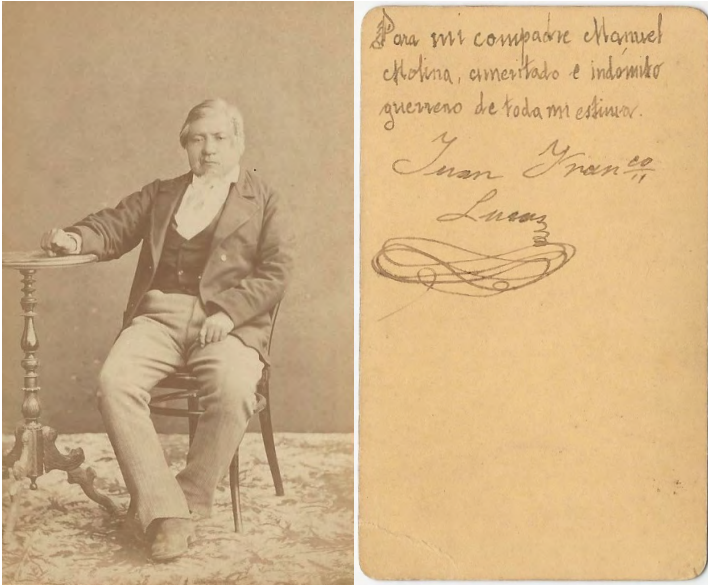 Para mi compadre Manuel
Molina, ameritado e indómito
guerrero de toda mi estima.
Juan Franco
Lucas